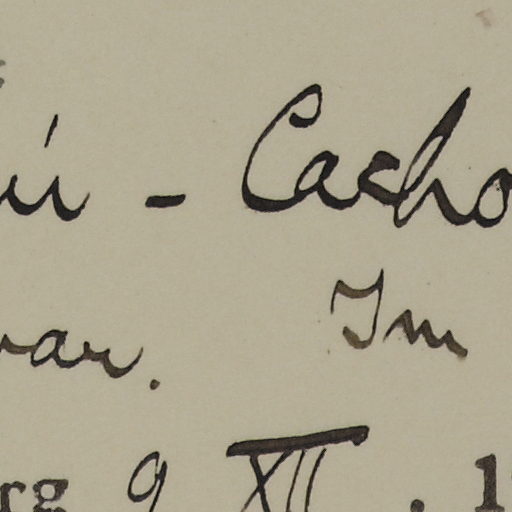 ú - Cacho
var. Im
rg 9 XII . 1